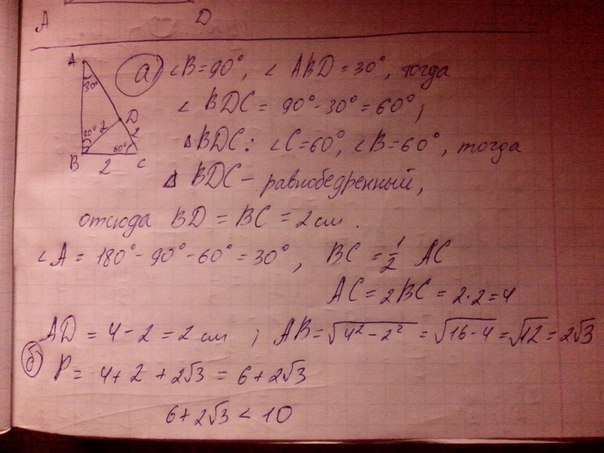 A D
A
30°
30° 2 D
2
60°
B 2 C
а) ∠B=90°, ∠ ABD=30°, тогда
∠ BDC = 90°-30°=60°;
△BDC: ∠C=60°, ∠B=60°, тогда
△ BDC - равнобедренный,
отсюда BD = BC = 2 см.
∠A = 180°-90°-60°=30°, BC = 1/2 AC
AC = 2BC = 2·2=4
AD = 4-2=2 см ; AB=√4²-2² = √16-4 = √12 = 2√3
б) P = 4+2+2√3 = 6+2√3
6+2√3 < 10